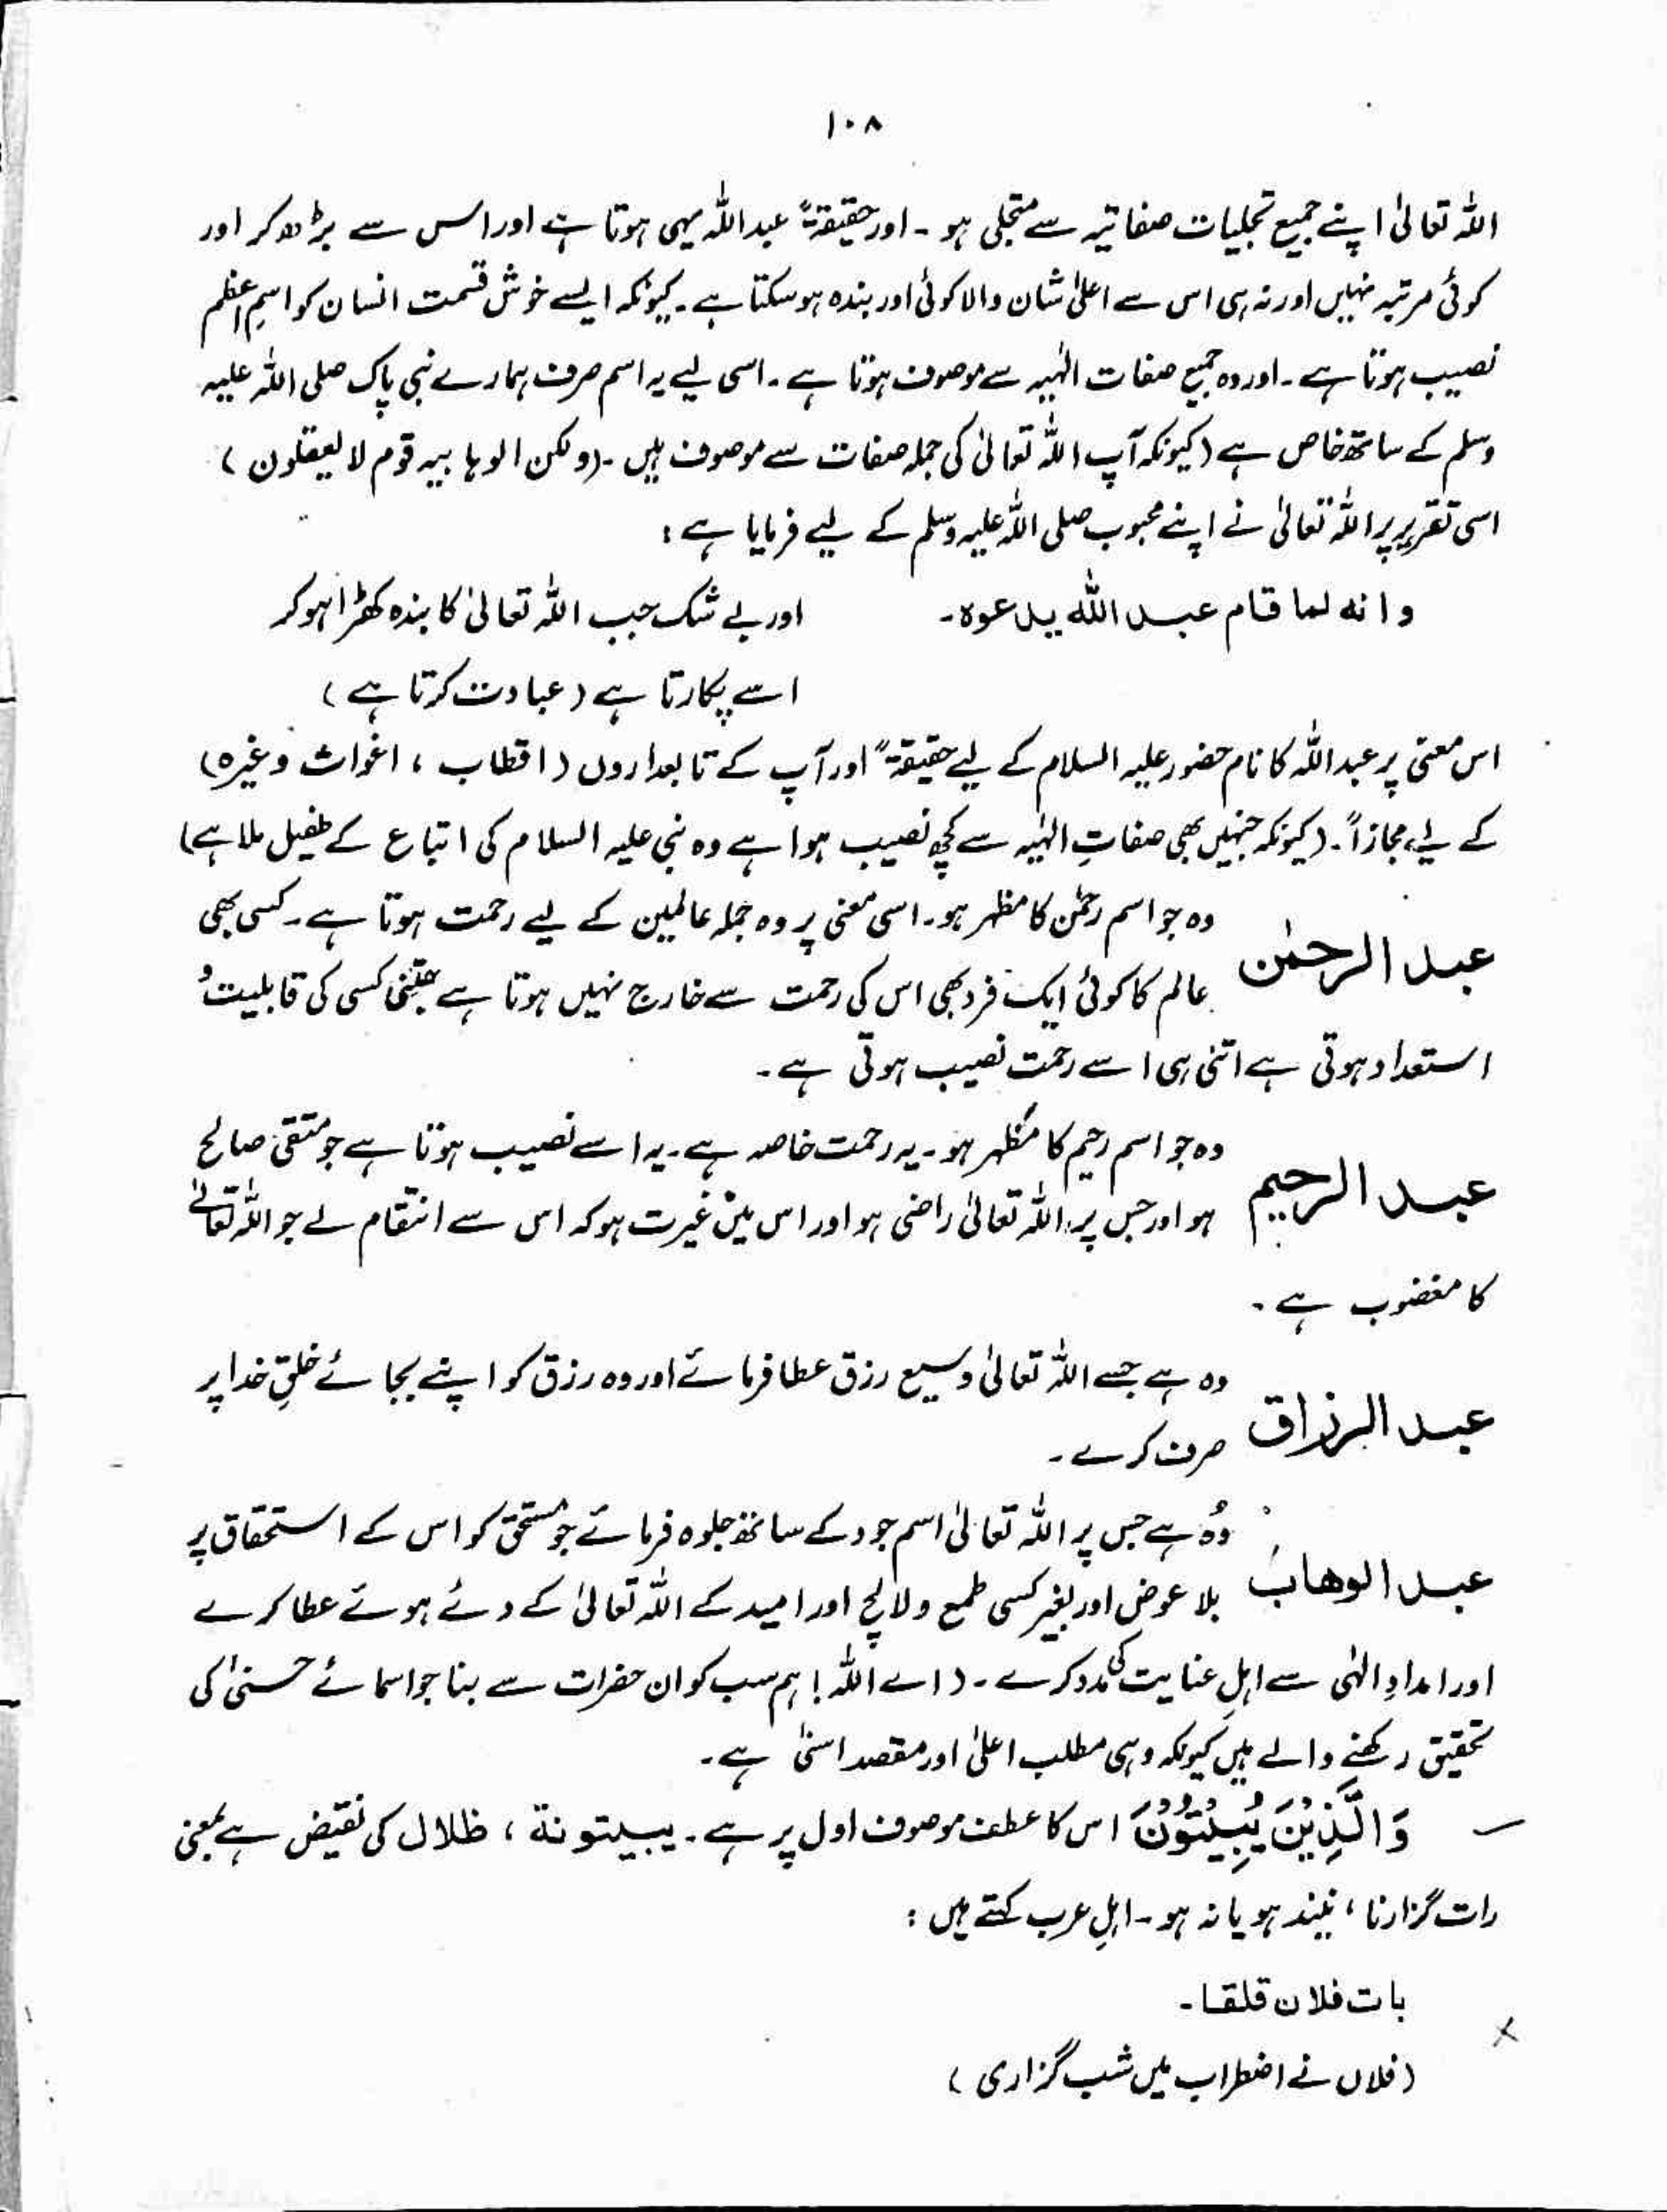 ۱۰۸
اللہ تعالیٰ اپنے جمیع تجلیات صفاتیہ سے متجلی ہو ۔ اور حقیقۃً عبداللہ یہی ہوتا ہے اور اس سے بڑھ کر اور
کوئی مرتبہ نہیں اور نہ ہی اس سے اعلیٰ شان والا کوئی اور بندہ ہو سکتا ہے ۔ کیونکہ ایسے خوش قسمت انسان کو اسمِ اعظم
نصیب ہوتا ہے ۔ اور وہ جمیع صفات الٰہیہ سے موصوف ہوتا ہے ۔ اسی لیے یہ اسم صرف ہمارے نبی پاک صلی اللہ علیہ
وسلم کے ساتھ خاص ہے (کیونکہ آپ اللہ تعالیٰ کی جملہ صفات سے موصوف ہیں ۔ (ولکن الوہابیہ قوم لا یعقلون)
اسی تقریر پر اللہ تعالیٰ نے اپنے محبوب صلی اللہ علیہ وسلم کے لیے فرمایا ہے :
وانه لما قام عبد الله يدعوه ۔ اور بے شک جب اللہ تعالیٰ کا بندہ کھڑا ہو کر
اسے پکارتا ہے (عبادت کرتا ہے)
اس معنی پر عبداللہ کا نام حضور علیہ السلام کے لیے حقیقۃً اور آپ کے تابعداروں (اقطاب ، اغواث وغیرہ)
کے لیے مجازاً ۔ (کیونکہ جنہیں بھی صفاتِ الٰہیہ سے کچھ نصیب ہوا ہے وہ نبی علیہ السلام کی اتباع کے طفیل ملا ہے)
وہ جو اسم رحمٰن کا مظہر ہو ۔ اسی معنی پر وہ جملہ عالمین کے لیے رحمت ہوتا ہے ۔ کسی بھی
عبد الرحمٰن عالم کا کوئی ایک فرد بھی اس کی رحمت سے خارج نہیں ہوتا ہے جتنی کسی کی قابلیت و
استعداد ہوتی ہے اتنی ہی اسے رحمت نصیب ہوتی ہے ۔
وہ جو اسم رحیم کا مظہر ہو ۔ یہ رحمت خاصہ ہے ۔ یہ اسے نصیب ہوتا ہے جو متقی صالح
عبد الرحیم ہو اور جس پر اللہ تعالیٰ راضی ہو اور اس میں غیرت ہو کہ اس سے انتقام لے جو اللہ تعالیٰ
کا مغضوب ہے ۔
وہ ہے جسے اللہ تعالیٰ وسیع رزق عطا فرمائے اور وہ رزق کو اپنے بجائے خلقِ خدا پر
عبد الرزاق صرف کرے ۔
وُہ ہے جس پر اللہ تعالیٰ اسم جود کے ساتھ جلوہ فرمائے جو مستحق کو اس کے استحقاق پر
عبد الوھاب بلا عوض اور بغیر کسی طمع و لالچ اور امید کے اللہ تعالیٰ کے دئے ہوئے عطا کرے
اور امدادِ الٰہی سے اہلِ عنایت کی مدد کرے ۔ (اے اللہ ! ہم سب کو ان حضرات سے بنا جو اسمائے حسنیٰ کی
تحقیق رکھنے والے ہیں کیونکہ وہی مطلب اعلیٰ اور مقصد اسنیٰ ہے ۔
وَالَّذِيْنَ يَبِيْتُوْنَ اس کا عطف موصوف اول پر ہے ۔ بیتوتة ، ظلال کی نقیض ہے بمعنی
رات گزارنا ، نیند ہو یا نہ ہو ۔ اہلِ عرب کہتے ہیں :
بات فلان قلقا ۔
(فلاں نے اضطراب میں شب گزاری)